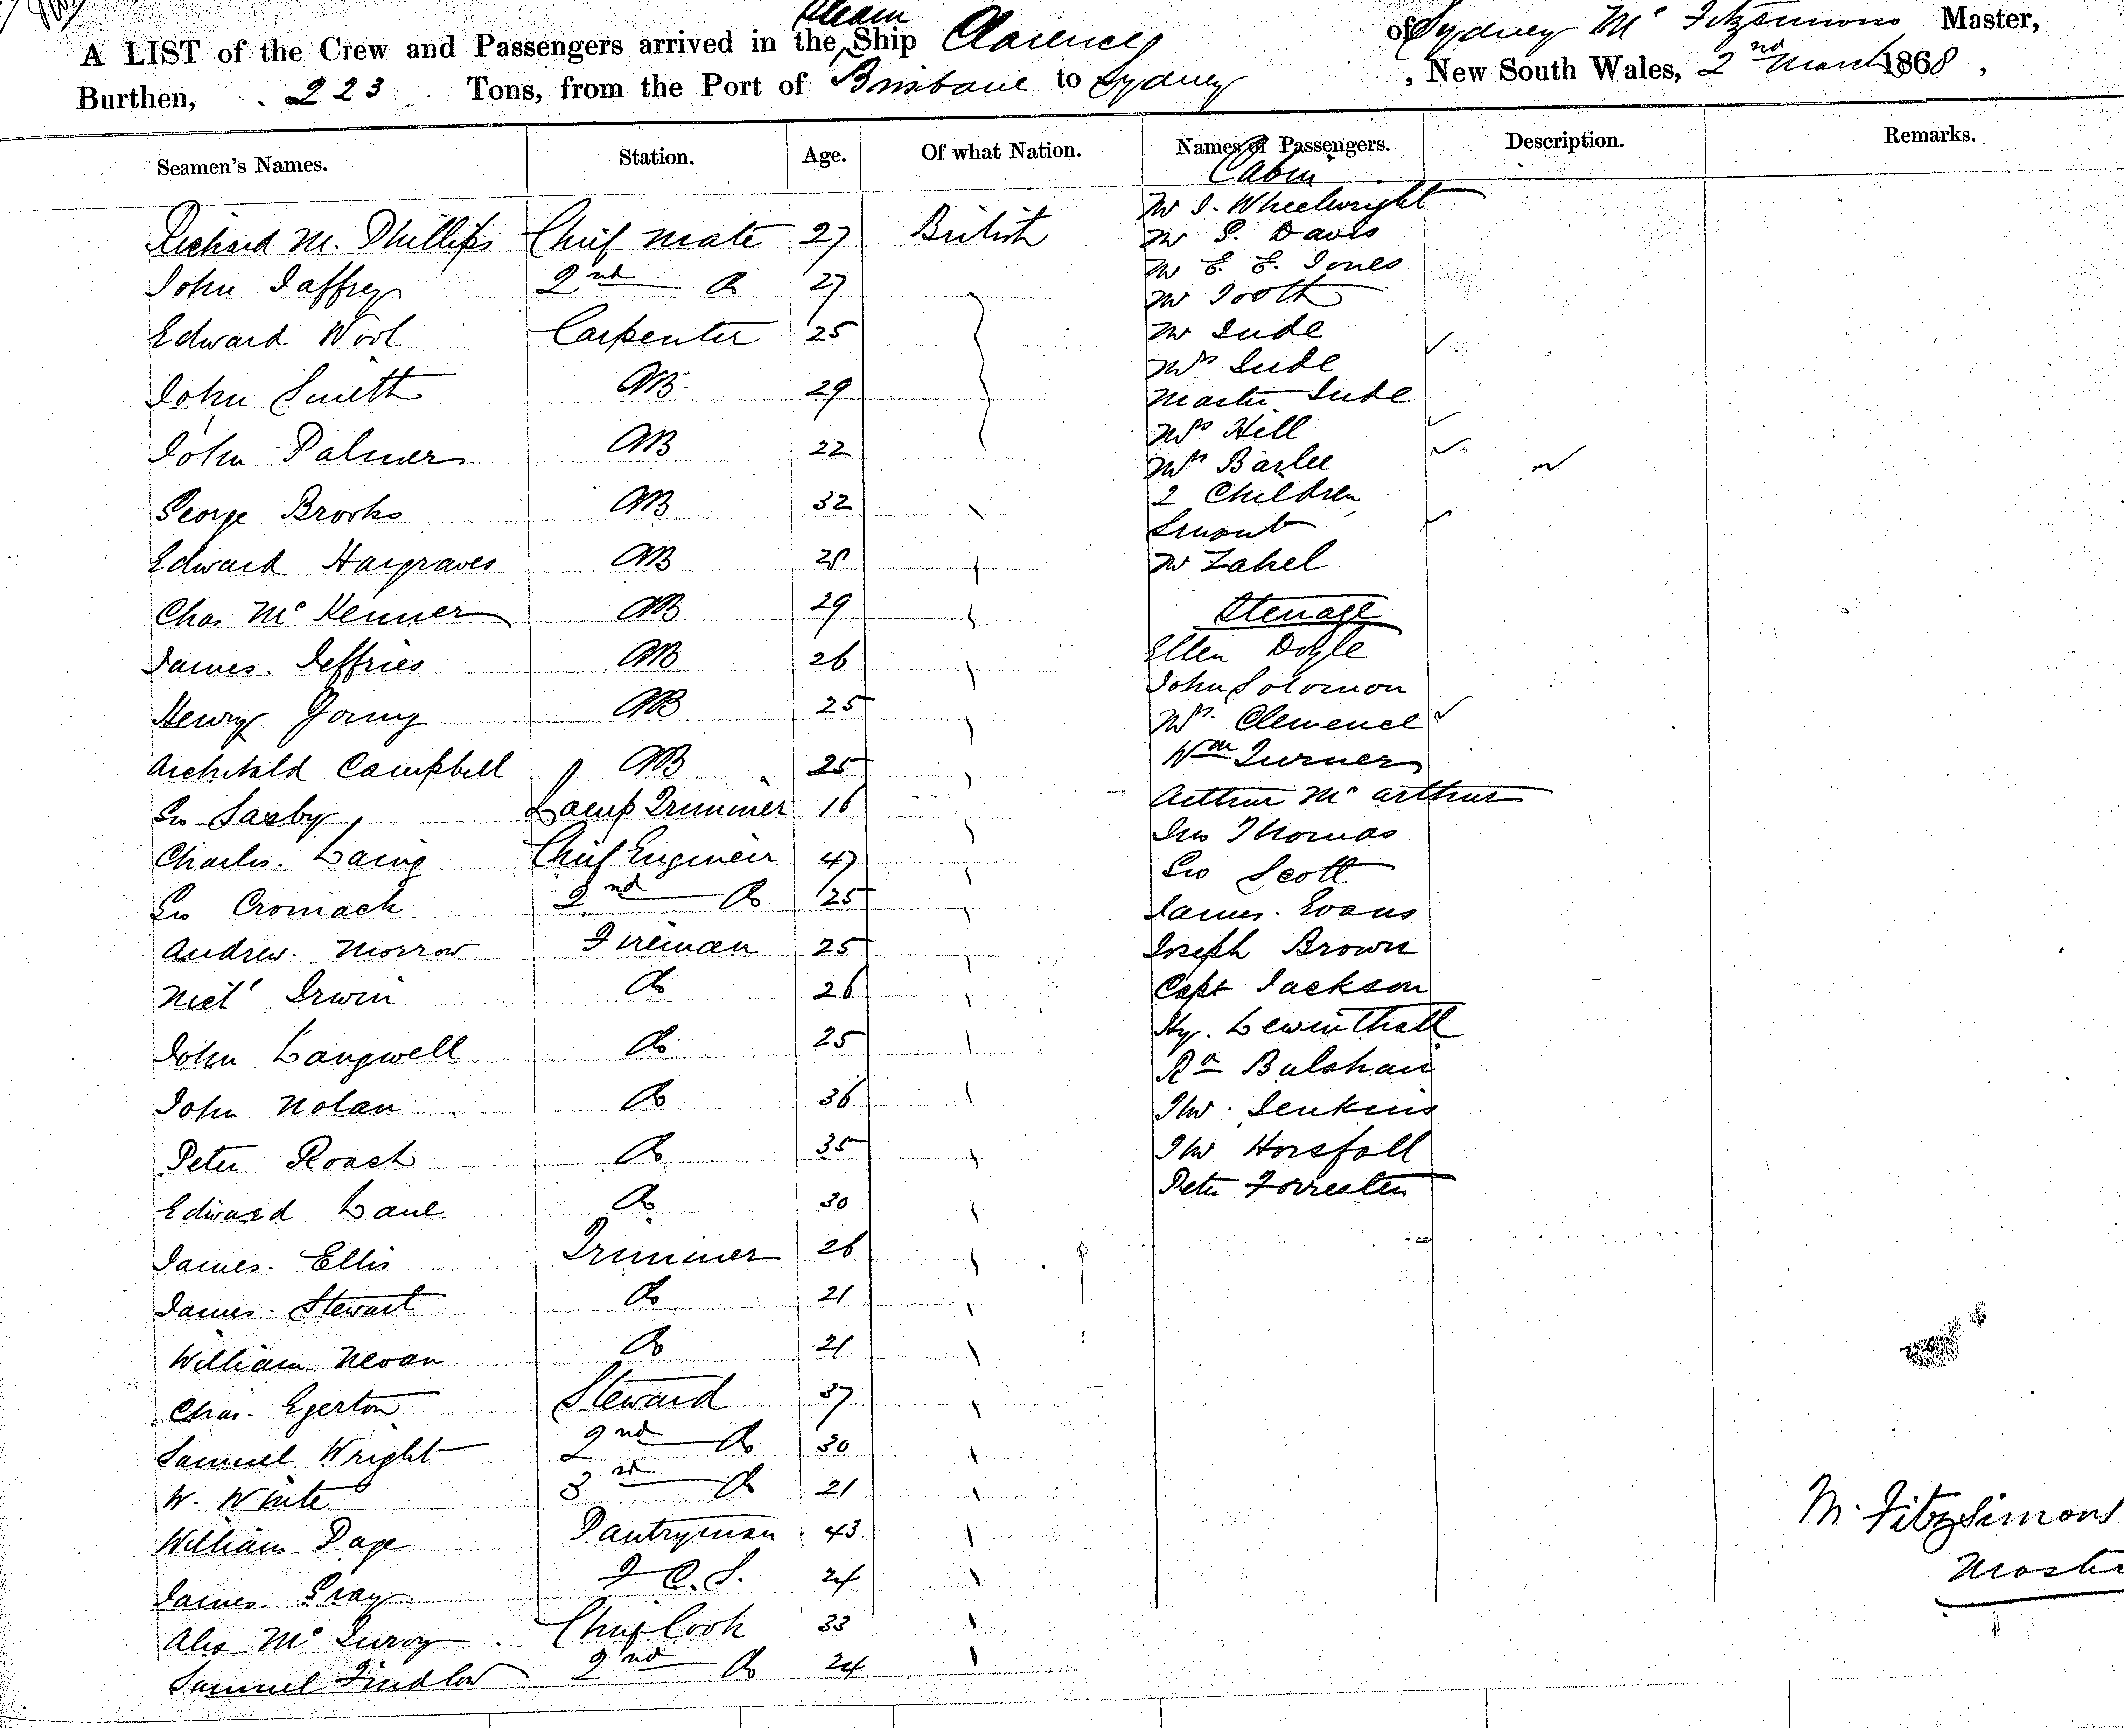 A LIST of the Crew and Passengers arrived in the Steam Ship Clarence of Sydney Mc Fitzsimons Master,
Burthen, 223 Tons, from the Port of Brisbane to Sydney, New South Wales, 2nd March 1868,
Seamen's Names. Station. Age. Of what Nation. Names of Passengers. Description. Remarks.
Richard M. Phillips Chief Mate 27 British
John Jaffrey 2nd Do 27
Edward Wool Carpenter 25
John Smith AB 29
John Palmer AB 22
George Brooks AB 32
Edward Hargraves AB 28
Chas McKenner AB 29
James Jeffries AB 26
Henry Young AB 25
Archibald Campbell AB 25
Geo Saxby Lamp Trimmer 16
Charles Laing Chief Engineer 47
Geo Cromack 2nd Do 25
Andrew Morrow Fireman 25
Mich' Irwin Do 26
John Langwell Do 25
John Nolan Do 36
Peter Roach Do 35
Edward Lane Do 30
James Ellis Trimmer 26
James Stewart Do 21
William Nevan Do 21
Chas. Egerton Steward 37
Samuel Wright 2nd Do 30
W. White 3rd Do 21
William Page Pantryman 43
James Gray F.C.S. 24
Alex McIlroy Chief Cook 33
Samuel Findlow 2nd Do 24
Cabin
Mr I. Wheelwright
Mr P. Davis
Mr E. E. Jones
Mr Tooth
Mr Jude
Mrs Jude
Master Jude
Mrs Hill
Mrs Barlee
2 Children
Servant
Mr Zahel
Steerage
Ellen Doyle
John Solomon
Mrs Clemence
Wm Turner
Arthur McArthur
Jno Thomas
Geo Scott
James Evans
Joseph Brown
Capt Jackson
Hy. Lewinthall
Rd Balshaw
Thos. Jenkins
Thos Horsfall
Peter Forrester
M. Fitzsimons
Master